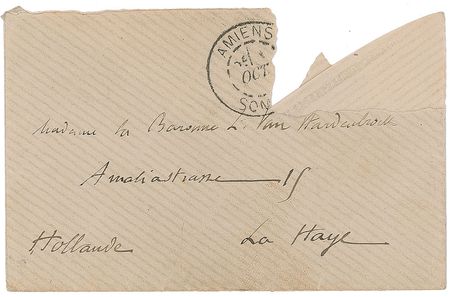 AMIENS
OCT
SOM
Madame la Baronne L. Van Hardenbroek
Amaliastrasse 15
Hollande
La Haye